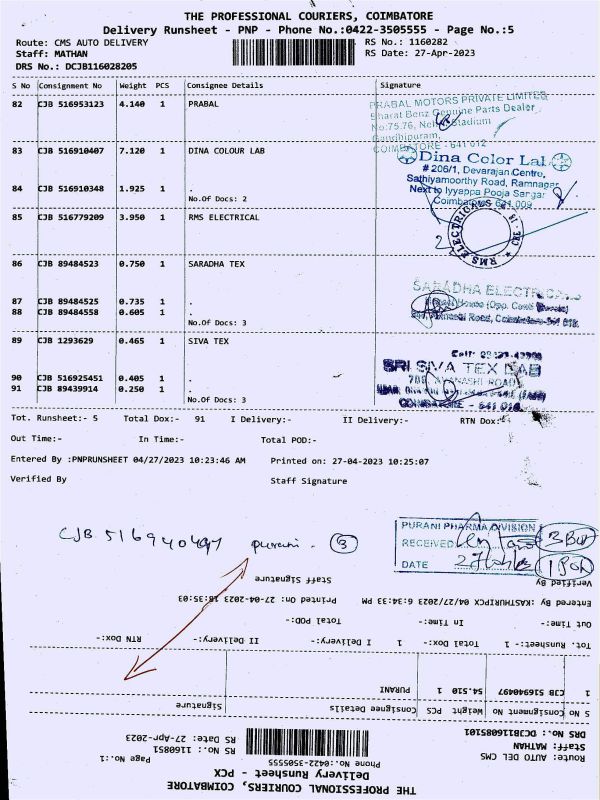 THE PROFESSIONAL COURIERS, COIMBATORE
Delivery Runsheet - PNP - Phone No.:0422-3505555 - Page No.:5
Route: CMS AUTO DELIVERY RS No.: 1160282
Staff: MATHAN RS Date: 27-Apr-2023
DRS No.: DCJB116028205
S No Consignment No Weight PCS Consignee Details Signature
82 CJB 516953123 4.140 1 PRABAL
PRABAL MOTORS PRIVATE LIMITED
Bharat Benz Genuine Parts Dealer
No:75,76, Nehru Stadium
Gandhipuram,
COIMBATORE - 641 012
83 CJB 516910407 7.120 1 DINA COLOUR LAB
Dina Color Lab
# 206/1, Devarajan Centre,
Sathiyamoorthy Road, Ramnagar
Next to Iyyappa Pooja Sangar
Coimbatore 641 009
84 CJB 516910348 1.925 1 .
No.Of Docs: 2
85 CJB 516779209 3.950 1 RMS ELECTRICAL
RMS ELECTRICALS
86 CJB 89484523 0.750 1 SARADHA TEX
87 CJB 89484525 0.735 1 .
88 CJB 89484558 0.605 1 .
No.Of Docs: 3
SARADHA ELECTRICALS
89 CJB 1293629 0.465 1 SIVA TEX
SRI SIVA TEX LAB
90 CJB 516925451 0.405 1 .
91 CJB 89439914 0.250 1 .
No.Of Docs: 3
COIMBATORE - 641 018
Tot. Runsheet:- 5 Total Dox:- 91 I Delivery:- II Delivery:- RTN Dox:-
Out Time:- In Time:- Total POD:-
Entered By :PNPRUNSHEET 04/27/2023 10:23:46 AM Printed on: 27-04-2023 10:25:07
Verified By Staff Signature
CJB 516940497 purani - 3
PURANI PHARMA DIVISION
RECEIVED
DATE 27/04/23
3 Box
1 POD
THE PROFESSIONAL COURIERS, COIMBATORE
Delivery Runsheet - PCX
Phone No.:0422-3505555
Route: AUTO DEL CMS RS No.: 1160851 Page No.:1
Staff: MATHAN RS Date: 27-Apr-2023
DRS No.: DCJB116085101
S No Consignment No Weight PCS Consignee Details Signature
1 CJB 516940497 54.510 1 PURANI
Tot. Runsheet:- 1 Total Dox:- 1 I Delivery:- II Delivery:- RTN Dox:-
Out Time:- In Time:- Total POD:-
Entered By :KASTHURIPCX 04/27/2023 6:34:33 PM Printed On: 27-04-2023 18:35:03
Verified By Staff Signature